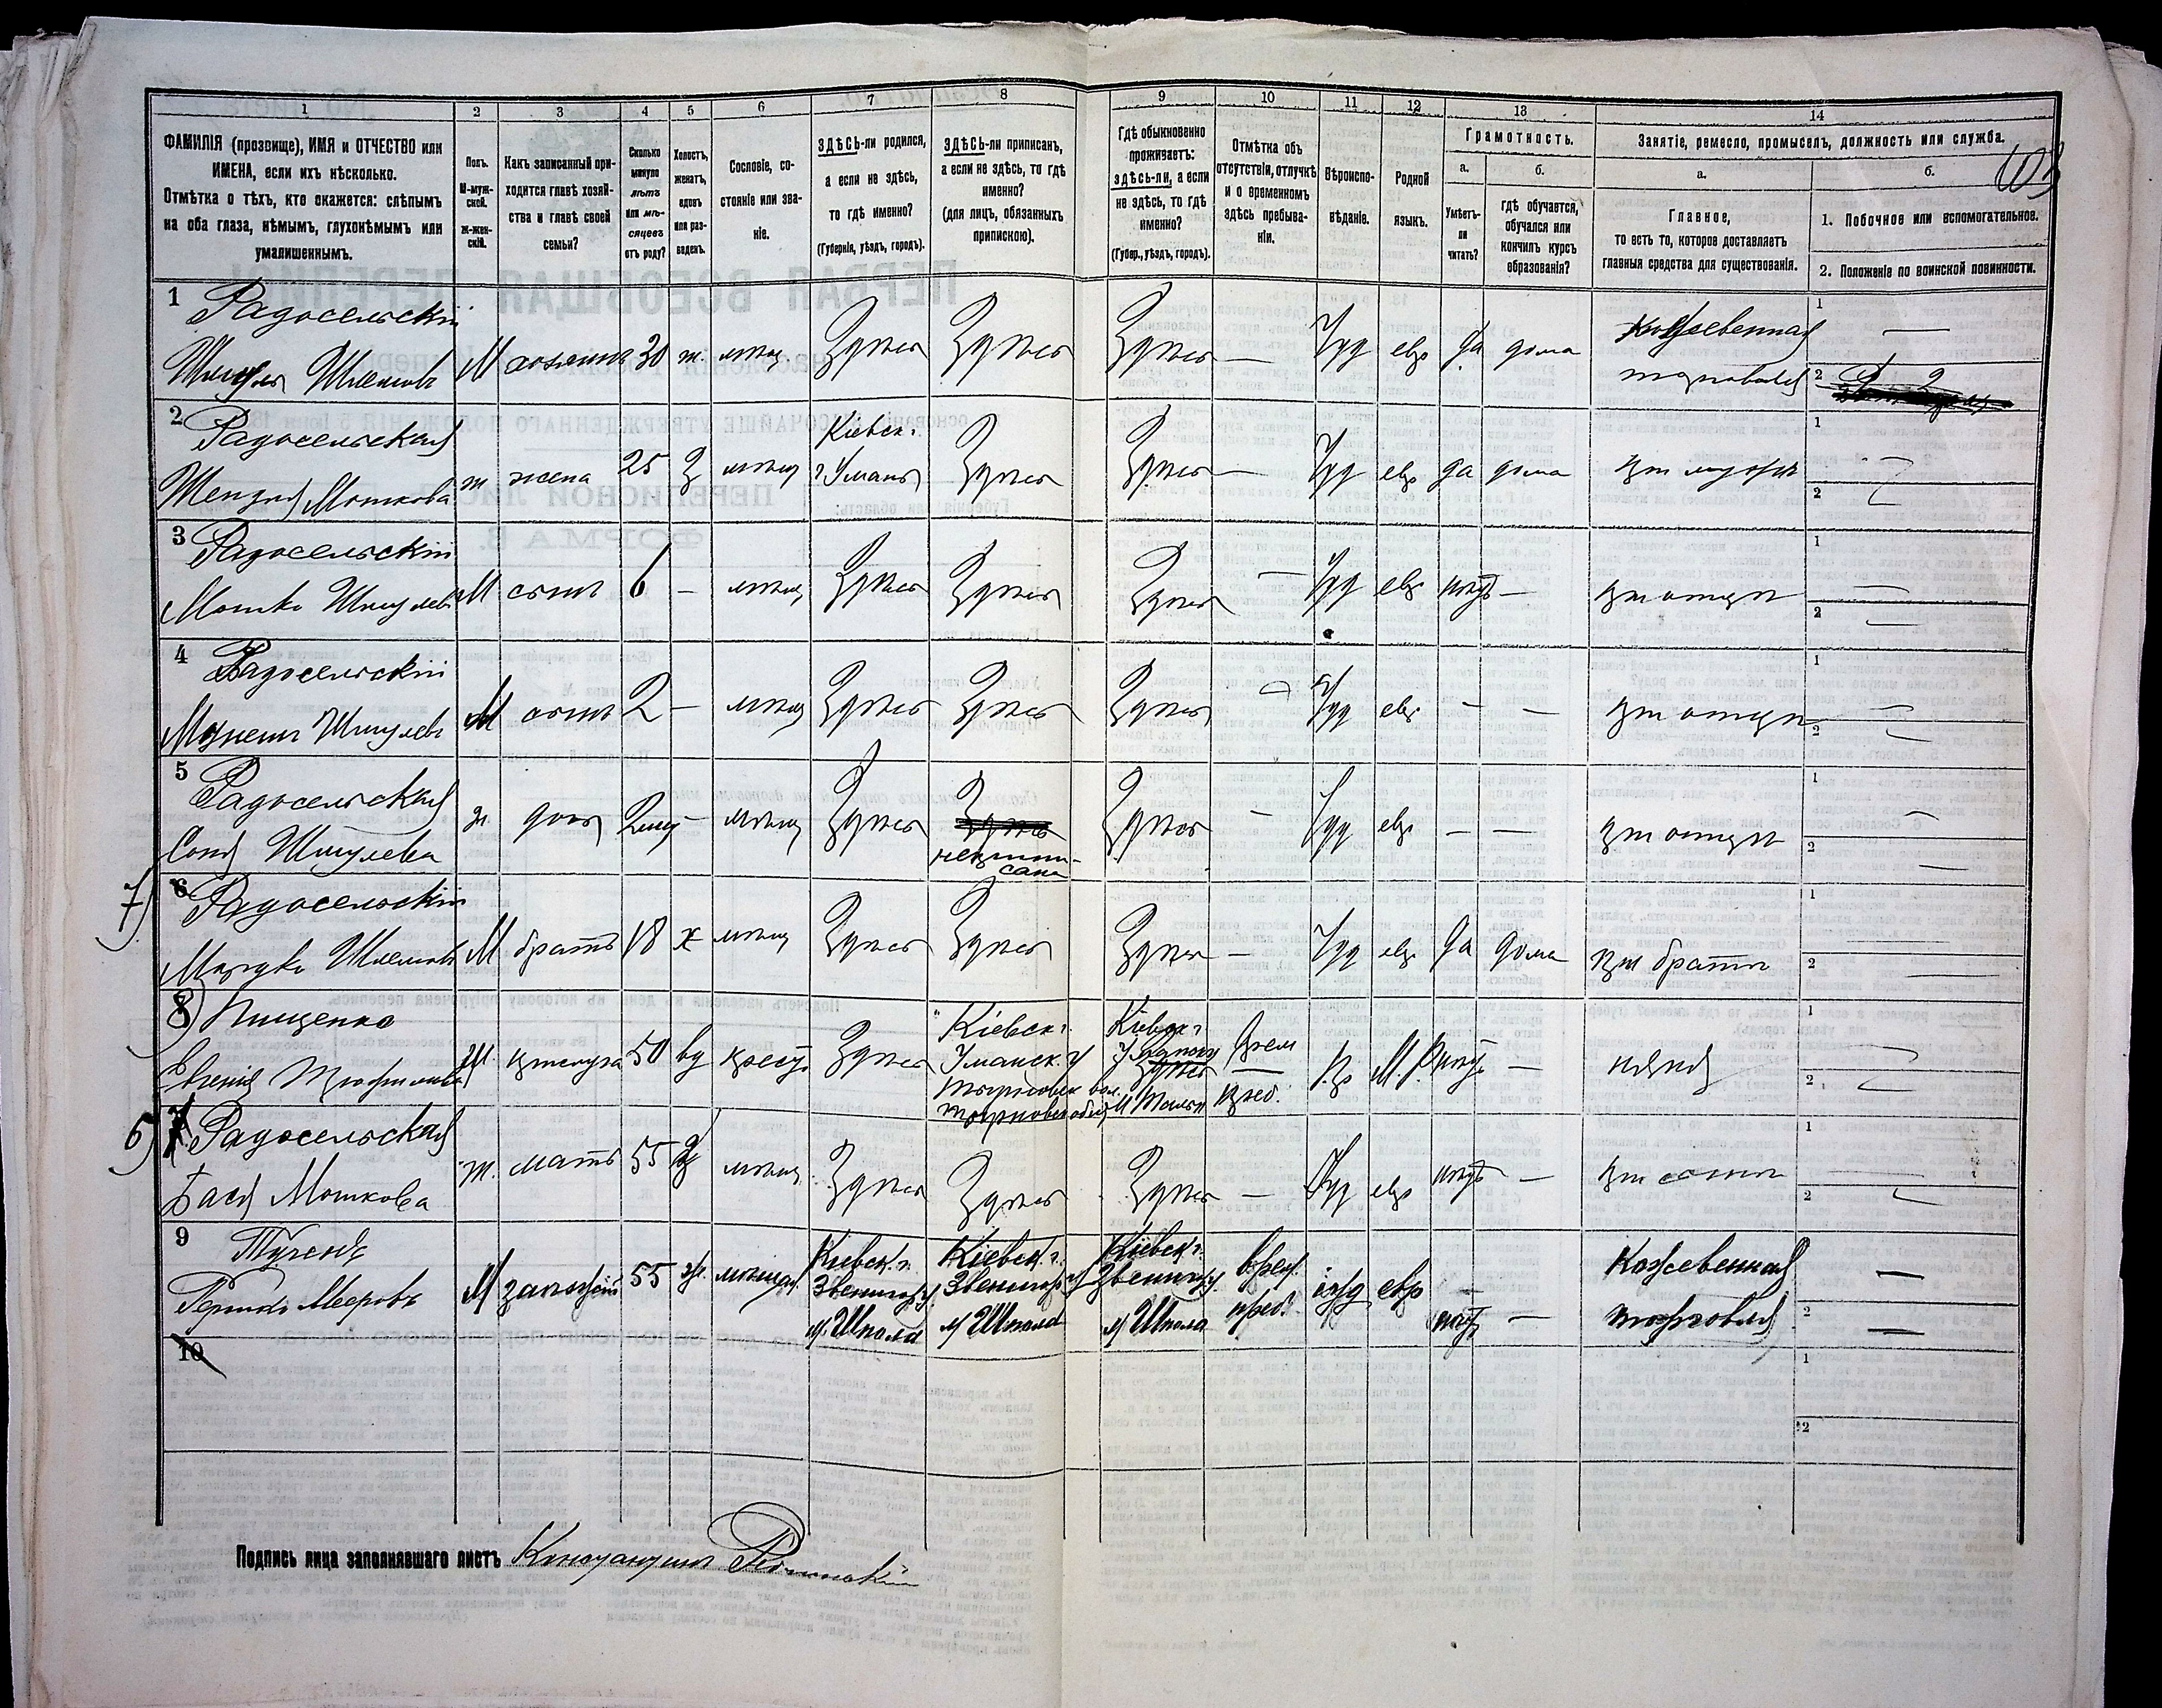 1 2 3 4 5 6 7 8 9 10 11 12 13 14
ФАМИЛІЯ (прозвище), ИМЯ и ОТЧЕСТВО или
ИМЕНА, если ихъ нѣсколько.
Отмѣтка о тѣхъ, кто окажется: слѣпымъ
на оба глаза, нѣмымъ, глухонѣмымъ или
умалишеннымъ.
Полъ.
М-муж-
ской.
Ж-жен-
скій.
Какъ записанный при-
ходится главѣ хозяй-
ства и главѣ своей
семьи?
Сколько
минуло
лѣтъ
или мѣ-
сяцевъ
отъ роду?
Холостъ,
женатъ,
вдовъ
или раз-
веденъ.
Сословіе, со-
стояніе или зва-
ніе.
ЗДѢСЬ-ли родился,
а если не здѣсь,
то гдѣ именно?
(Губернія, уѣздъ, городъ).
ЗДѢСЬ-ли приписанъ,
а если не здѣсь, то гдѣ
именно?
(для лицъ, обязанныхъ
припискою).
Гдѣ обыкновенно
проживаетъ:
здѣсь-ли, а если
не здѣсь, то гдѣ
именно?
(Губер., уѣздъ, городъ).
Отмѣтка объ
отсутствіи, отлучкѣ
и о временномъ
здѣсь пребыва-
ніи.
Вѣроиспо-
вѣданіе.
Родной
языкъ.
Грамотность.
а.
Умѣетъ-
ли
читать?
б.
гдѣ обучается,
обучался или
кончилъ курсъ
образованія?
Занятіе, ремесло, промыселъ, должность или служба.
а.
Главное,
то есть то, которое доставляетъ
главныя средства для существованія.
б.
1. Побочное или вспомогательное.
2. Положеніе по воинской повинности.
1 Радосельскій
Шмуль Шлемовъ М хозяинъ 30 ж. мѣщ. Здѣсь Здѣсь Здѣсь — Іуд евр да дома Кожевенная
торговля
2 Радосельская
Мошкова ж жена 25 З мѣщ Кіевск.
г Умань Здѣсь Здѣсь — Іуд евр да дома при мужѣ
3 Радосельскій
Мошко Шмулевъ М сынъ 6 — мѣщ Здѣсь Здѣсь Здѣсь — Іуд евр нѣтъ — при отцѣ
4 Радосельскій
Шмулевъ М сынъ 2 — мѣщ Здѣсь Здѣсь Здѣсь Іуд евр — — при отцѣ
5 Радосельская
Соня Шмулева ж. дочь 2 мѣщ Здѣсь Здѣсь
неприпи-
сана Здѣсь — Іуд евр — — при отцѣ
7) 6 Радосельскій
Мордко Шлемовъ М братъ 18 х мѣщ Здѣсь Здѣсь Здѣсь — Іуд евр да дома при братѣ
8) Пищенко
Евгенія прислуга 50 вд крест Здѣсь Кіевск г.
Уманск. у Кіевск г
врем
преб. Пр М. Р. нѣтъ — няня
6) 7 Радосельская
Бася Мошкова ж. мать 55 мѣщ Здѣсь Здѣсь Здѣсь — Іуд евр нѣтъ — при сынѣ
9
Мееровъ М 55 ж. мѣщан Кіевск. г.
Звенигор у
м Шпола Кіевск. г.
Звенигор у
м Шпола Кіевск г.
Звенигор у
м Шпола врем.
преб. іуд евр нѣтъ — Кожевенная
торговля
10
Подпись лица заполнявшаго листъ Константинъ